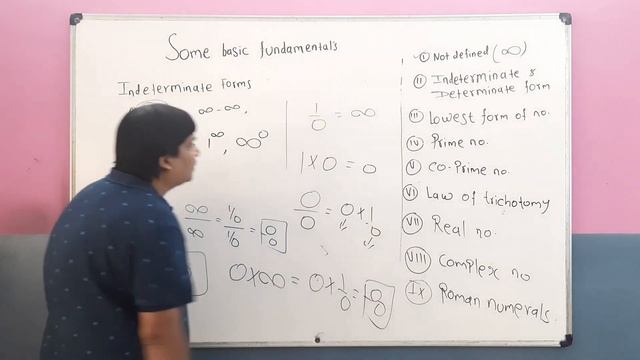 Some basic fundamentals
Indeterminate Forms
∞-∞,
1^∞, ∞^0
∞/∞ = 1/0 / 1/0 = 0/0
1/0 = ∞
1×0 = 0
0/0 = 0×1/0
0×∞ = 0×1/0 = 0/0
I Not defined (∞)
II Indeterminate &
Determinate form
III Lowest form of no.
IV Prime no.
V Co-Prime no.
VI Law of trichotomy
VII Real no.
VIII Complex no
IX Roman numerals.